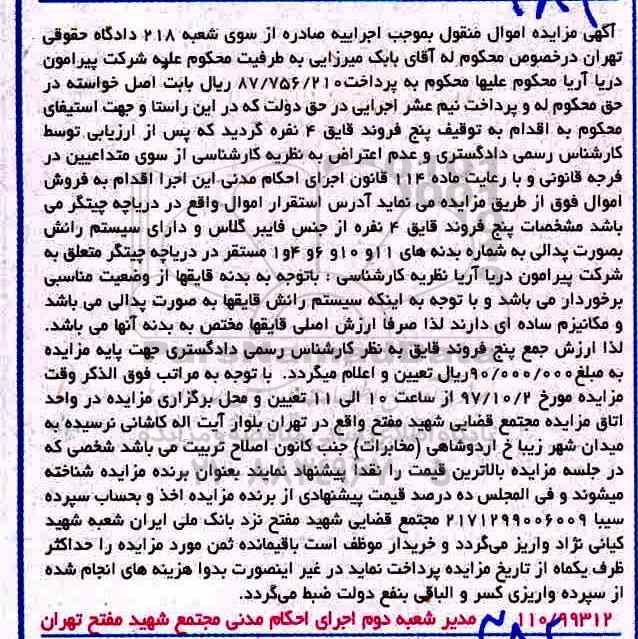 آگهی مزایده اموال منقول بموجب اجراییه صادره از سوی شعبه ۲۱۸ دادگاه حقوقی
تهران درخصوص محکوم له آقای بابک میرزایی به طرفیت محکوم علیه شرکت پیرامون
دریا آریا محکوم علیها محکوم به پرداخت ۸۷/۷۵۶/۲۱۰ ریال بابت اصل خواسته در
حق محکوم له و پرداخت نیم عشر اجرایی در حق دولت که در این راستا و جهت استیفای
محکوم به اقدام به توقیف پنج فروند قایق ۴ نفره گردید که پس از ارزیابی توسط
کارشناس رسمی دادگستری و عدم اعتراض به نظریه کارشناسی از سوی متداعیین در
فرجه قانونی و با رعایت ماده ۱۱۴ قانون اجرای احکام مدنی این اجرا اقدام به فروش
اموال فوق از طریق مزایده می نماید آدرس استقرار اموال واقع در دریاچه چیتگر می
باشد مشخصات پنج فروند قایق ۴ نفره از جنس فایبر گلاس و دارای سیستم رانش
بصورت پدالی به شماره بدنه های ۱۱و ۱۰و ۶و ۴و۱ مستقر در دریاچه چیتگر متعلق به
شرکت پیرامون دریا آریا نظریه کارشناسی : باتوجه به بدنه قایقها از وضعیت مناسبی
برخوردار می باشد و با توجه به اینکه سیستم رانش قایقها به صورت پدالی می باشد
و مکانیزم ساده ای دارند لذا صرفا ارزش اصلی قایقها مختص به بدنه آنها می باشد.
لذا ارزش جمع پنج فروند قایق به نظر کارشناس رسمی دادگستری جهت پایه مزایده
به مبلغ ۹۰/۰۰۰/۰۰۰ریال تعیین و اعلام میگردد. با توجه به مراتب فوق الذکر وقت
مزایده مورخ ۹۷/۱۰/۲ از ساعت ۱۰ الی ۱۱ تعیین و محل برگزاری مزایده در واحد
اتاق مزایده مجتمع قضایی شهید مفتح واقع در تهران بلوار آیت اله کاشانی نرسیده به
میدان شهر زیبا خ اردوشاهی (مخابرات) جنب کانون اصلاح تربیت می باشد شخصی که
در جلسه مزایده بالاترین قیمت را نقداً پیشنهاد نمایند بعنوان برنده مزایده شناخته
میشوند و فی المجلس ده درصد قیمت پیشنهادی از برنده مزایده اخذ و بحساب سپرده
سیبا ۲۱۷۱۲۹۹۰۰۶۰۰۹ مجتمع قضایی شهید مفتح نزد بانک ملی ایران شعبه شهید
کیانی نژاد واریز می‌گردد و خریدار موظف است باقیمانده ثمن مورد مزایده را حداکثر
ظرف یکماه از تاریخ مزایده پرداخت نماید در غیر اینصورت بدوا هزینه های انجام شده
از سپرده واریزی کسر و الباقی بنفع دولت ضبط می‌گردد.
۱۱۰/۹۹۳۱۲ مدیر شعبه دوم اجرای احکام مدنی مجتمع شهید مفتح تهران